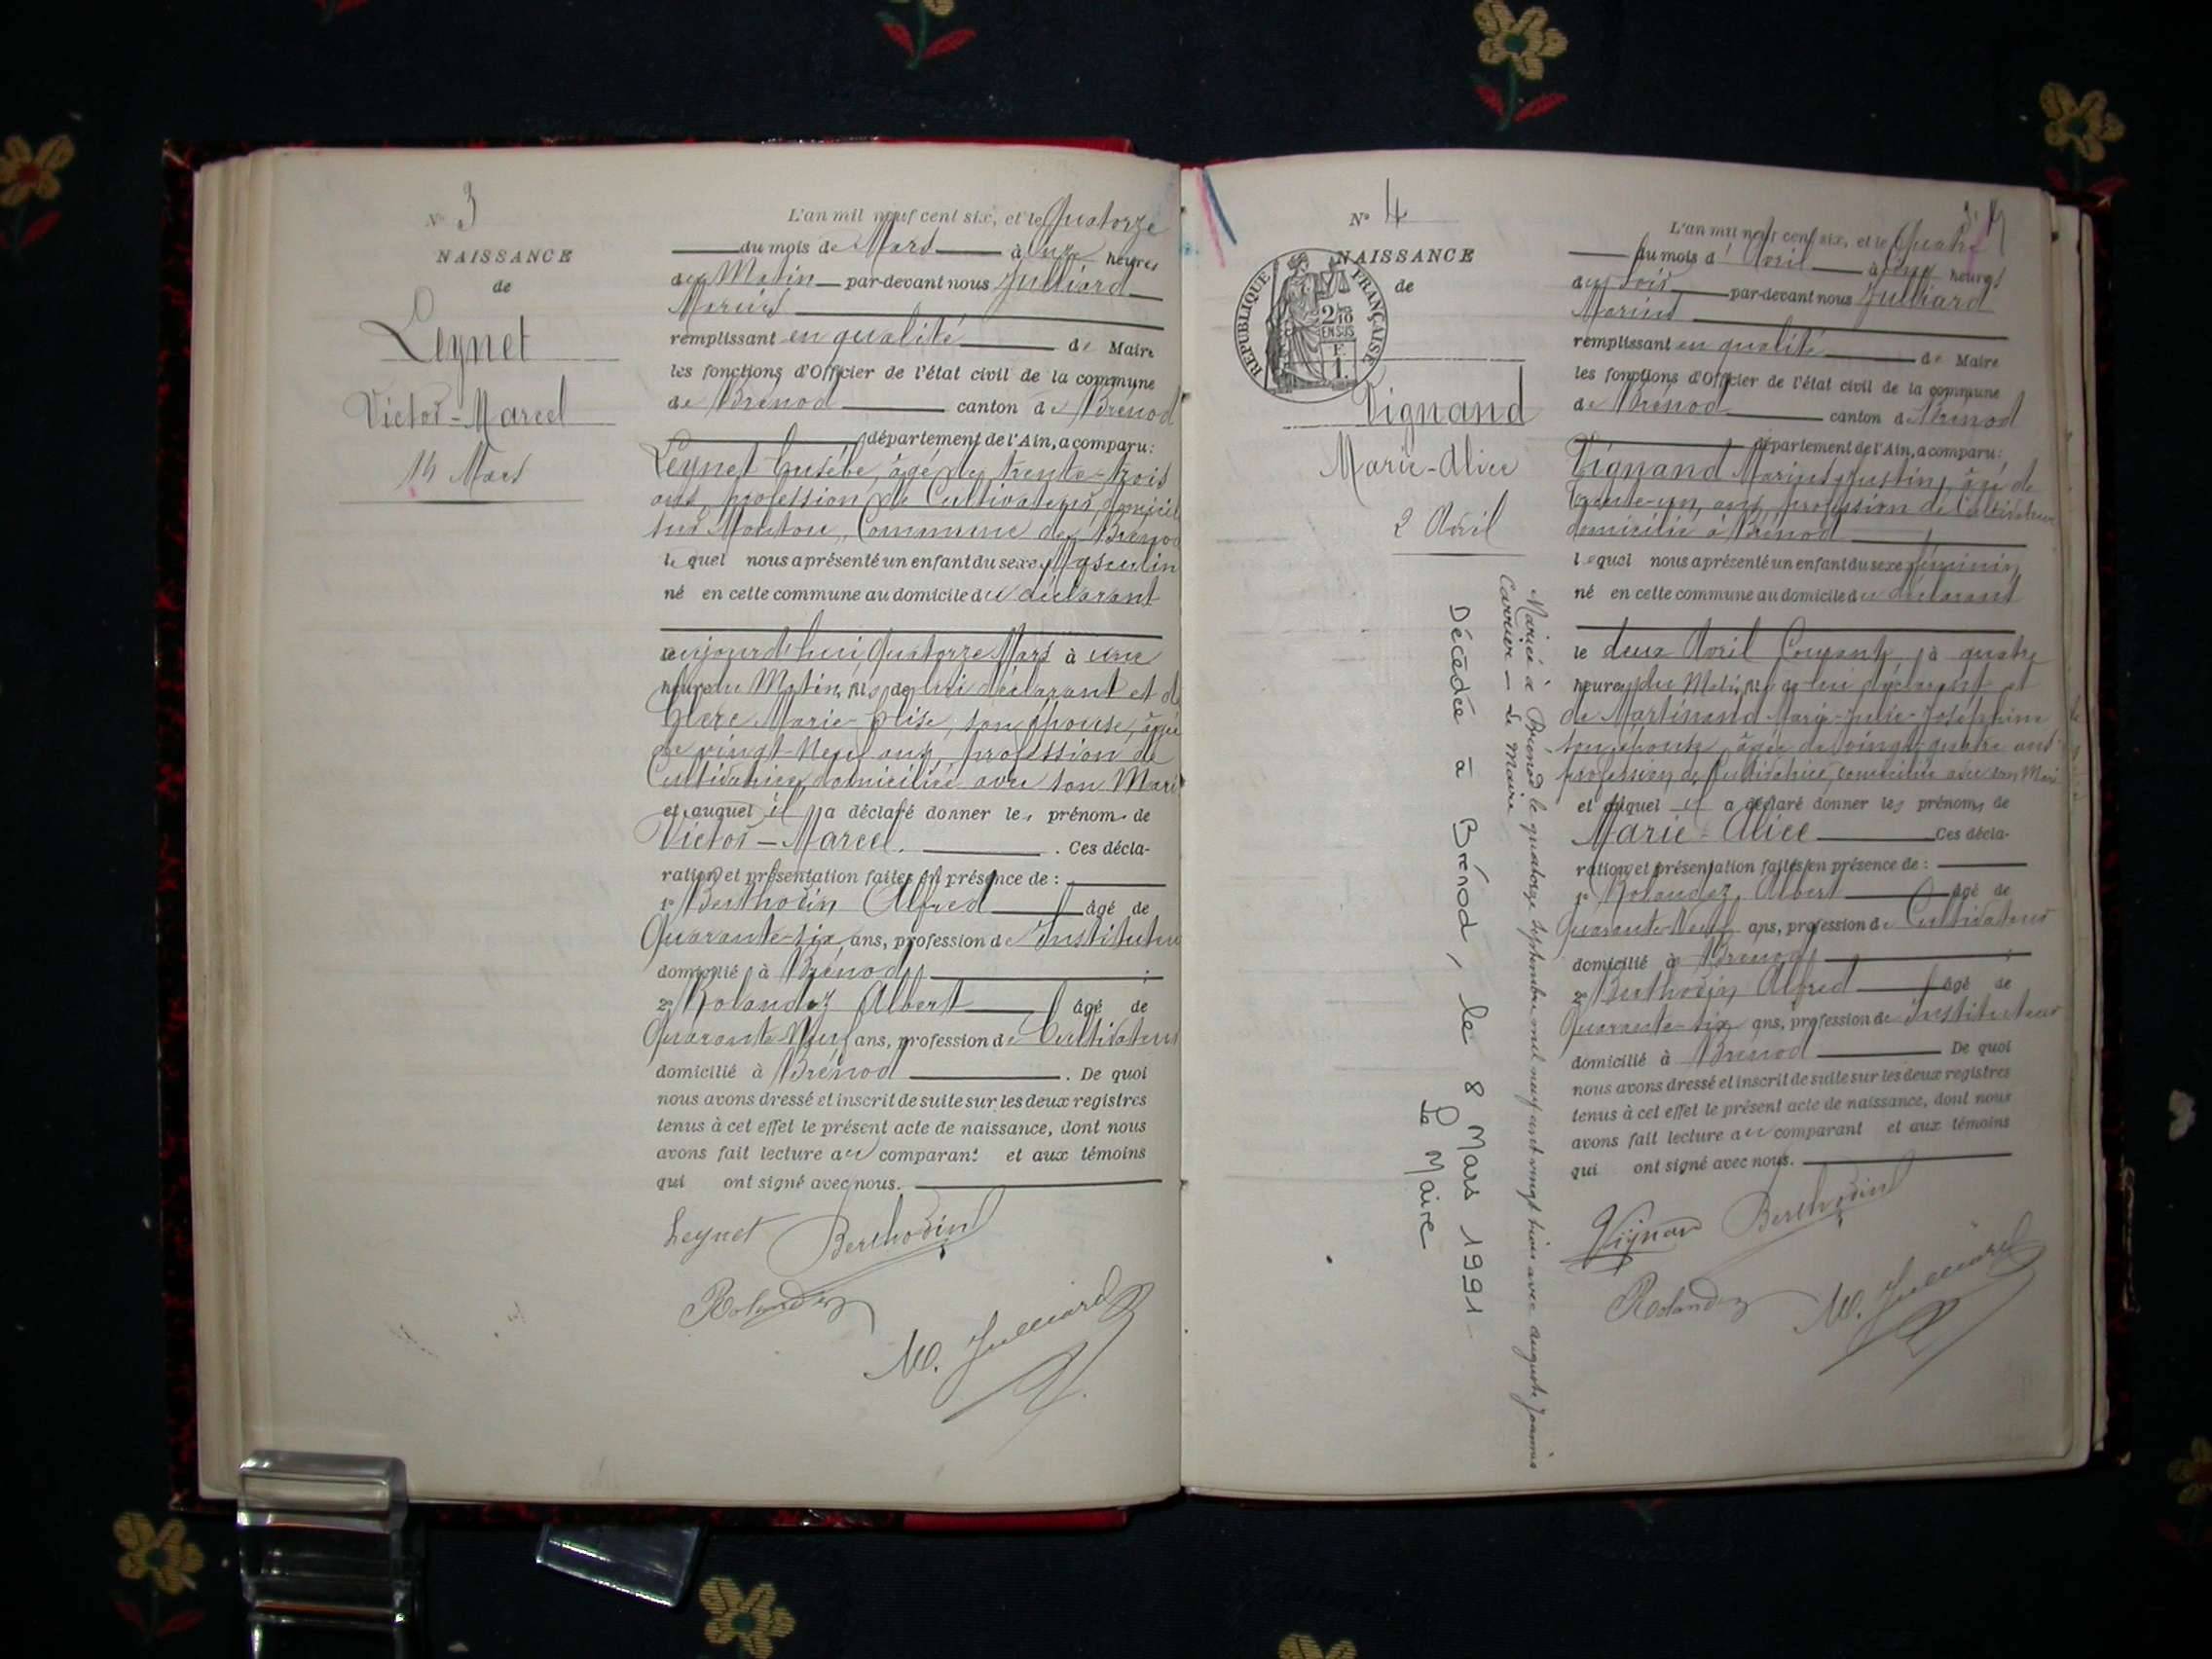 N° 3
NAISSANCE
de
Leynet
Victor-Marcel
14 Mars
L'an mil neuf cent six, et le Quatorze
du mois de Mars à onze heures
du Matin par-devant nous Julliard
Marius
remplissant en qualité de Maire
les fonctions d'Officier de l'état civil de la commune
de Brénod canton de Brénod
département de l'Ain, a comparu:
Leynet Eusèbe, âgé de trente-trois
ans, profession de Cultivateur, domicil
Commune de Brénod
lequel nous a présenté un enfant du sexe Masculin
né en cette commune au domicile du déclarant
aujourd'hui Quatorze Mars à une
heure du Matin, fils de lui déclarant et de
Marie-Elise, son épouse, âgée
de vingt-neuf ans, profession de
Cultivatrice, domiciliée avec son Mari
et auquel il a déclaré donner les prénom de
Victor-Marcel. Ces décla-
ration et présentation faites en présence de :
1° Berthodin Alfred âgé de
Quarante-six ans, profession de Instituteur
domicilié à Brénod ;
2° Rolandez Albert âgé de
Quarante Neuf ans, profession de Cultivateur
domicilié à Brénod. De quoi
nous avons dressé et inscrit de suite sur les deux registres
tenus à cet effet le présent acte de naissance, dont nous
avons fait lecture au comparant et aux témoins
qui ont signé avec nous.
Leynet Berthodin
Rolandez
M. Julliard
N° 4
NAISSANCE
de
RÉPUBLIQUE FRANÇAISE
2/10
EN SUS
F.
1.
Vignand
Marie-Alice
2 Avril
Mariée à Brénod le quatorze septembre mil neuf cent vingt trois avec Auguste Joannès
Carrier - Le Maire
Décédée à Brénod, le 8 Mars 1991
Le Maire
L'an mil neuf cent six, et le Quatre
du mois d'Avril à cinq heures
du soir par-devant nous Julliard
Marius
remplissant en qualité de Maire
les fonctions d'Officier de l'état civil de la commune
de Brénod canton de Brénod
département de l'Ain, a comparu:
Vignand Marius Justin, âgé de
trente-un ans, profession de Cultivateur
domicilié à Brénod
lequel nous a présenté un enfant du sexe féminin
né en cette commune au domicile du déclarant
le deux Avril Courant, à quatre
heures du Matin, fils de lui déclarant et
de Martinand Marie-Julie-Joséphine
son épouse, âgée de vingt-quatre ans
profession de Cultivatrice, domiciliée avec son Mari
et auquel il a déclaré donner les prénoms de
Marie-Alice Ces décla-
ration et présentation faites en présence de :
1° Rolandez Albert âgé de
Quarante-Neuf ans, profession de Cultivateur
domicilié à Brénod ;
2° Berthodin Alfred âgé de
Quarante-six ans, profession de Instituteur
domicilié à Brénod De quoi
nous avons dressé et inscrit de suite sur les deux registres
tenus à cet effet le présent acte de naissance, dont nous
avons fait lecture au comparant et aux témoins
qui ont signé avec nous.
Vignand Berthodin
Rolandez M. Julliard